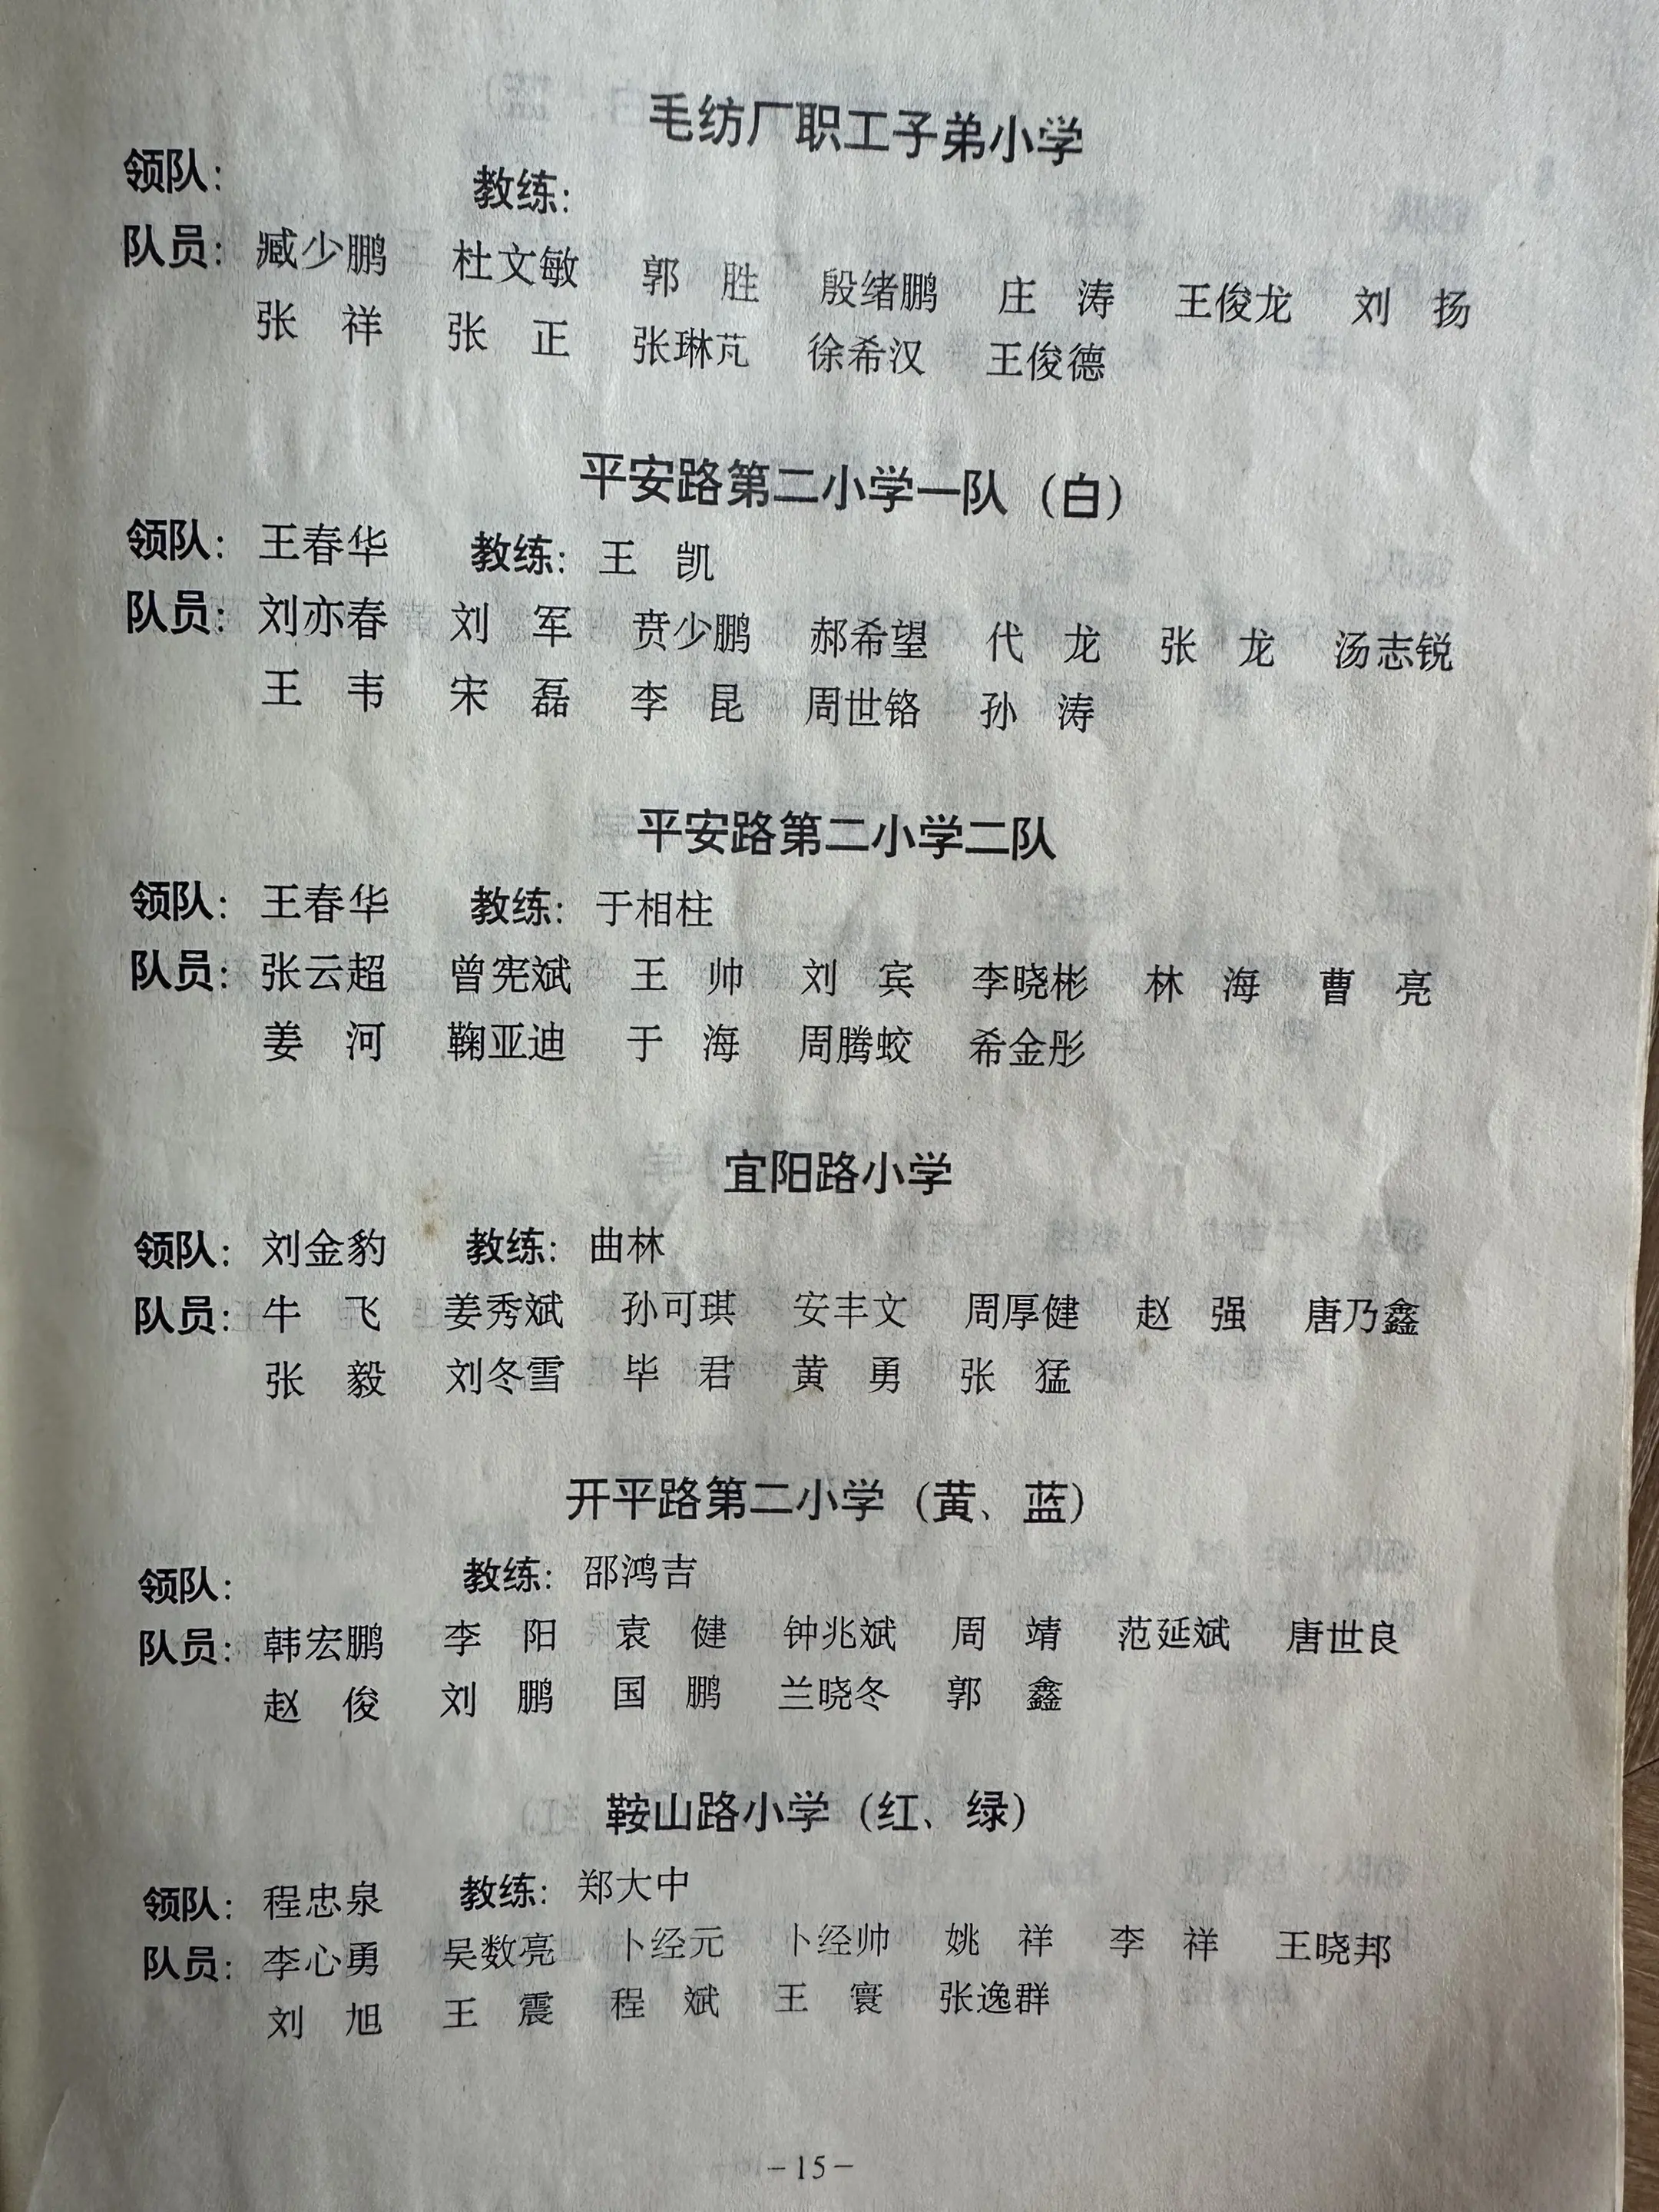 毛纺厂职工子弟小学
领队： 教练：
队员：臧少鹏 杜文敏 郭 胜 殷绪鹏 庄 涛 王俊龙 刘 扬
张 祥 张 正 张琳芃 徐希汉 王俊德
平安路第二小学一队（白）
领队：王春华 教练：王 凯
队员：刘亦春 刘 军 贲少鹏 郝希望 代 龙 张 龙 汤志锐
王 韦 宋 磊 李 昆 周世铬 孙 涛
平安路第二小学二队
领队：王春华 教练：于相柱
队员：张云超 曾宪斌 王 帅 刘 宾 李晓彬 林 海 曹 亮
姜 河 鞠亚迪 于 海 周腾蛟 希金彤
宜阳路小学
领队：刘金豹 教练：曲林
队员：牛 飞 姜秀斌 孙可琪 安丰文 周厚健 赵 强 唐乃鑫
张 毅 刘冬雪 毕 君 黄 勇 张 猛
开平路第二小学（黄、蓝）
领队： 教练：邵鸿吉
队员：韩宏鹏 李 阳 袁 健 钟兆斌 周 靖 范延斌 唐世良
赵 俊 刘 鹏 国 鹏 兰晓冬 郭 鑫
鞍山路小学（红、绿）
领队：程忠泉 教练：郑大中
队员：李心勇 吴数亮 卜经元 卜经帅 姚 祥 李 祥 王晓邦
刘 旭 王 震 程 斌 王 寰 张逸群
－15－